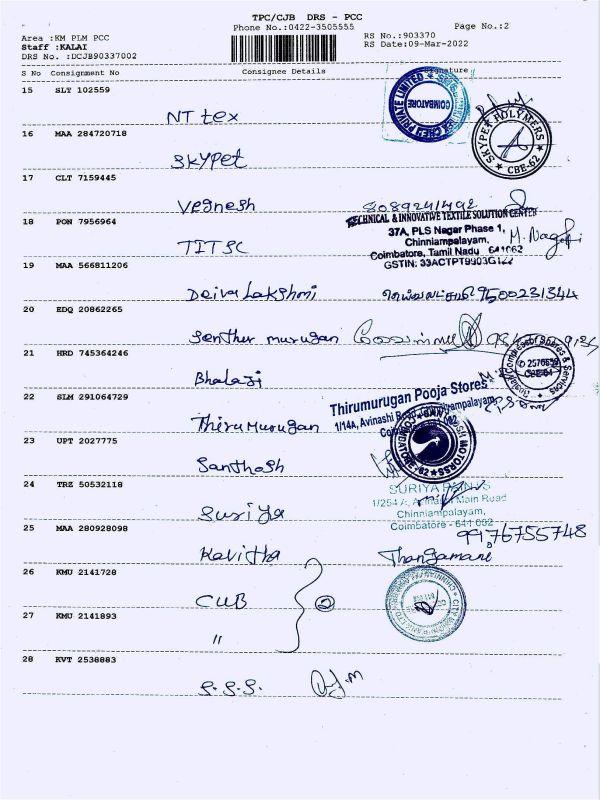 TPC/CJB DRS - PCC
Phone No.:0422-3505555
Page No.:2
Area :KM PLM PCC
RS No.:903370
Staff :KALAI
RS Date:09-Mar-2022
DRS No. :DCJB90337002
S No Consignment No Consignee Details Signature
15 SLT 102559
NT tex
PRIVATE LIMITED
COIMBATORE
16 MAA 284720718
Skypet
SKYPET POLYMERS
CBE-62
17 CLT 7159445
Vegnesh 8089241492
18 PON 7956964
TITSC
TECHNICAL & INNOVATIVE TEXTILE SOLUTION CENTER
37A, PLS Nagar Phase 1,
Chinniampalayam,
Coimbatore, Tamil Nadu 641062
19 MAA 566811206
Deiva Lakshmi தெய்வலட்சுமி 9500231344
20 EDQ 20862265
Senthur murugan
21 HRD 745364246
Bhalaji
22 SLM 291064729
Thirumurugan
Thirumurugan Pooja Stores
1/14A, Avinashi Road, Chinniyampalayam,
23 UPT 2027775
Santhosh
24 TRZ 50532118
Suriya
SURIYA PAINTS
Main Road
Chinniampalayam,
Coimbatore - 641 062
25 MAA 280928098
Kavitha Thangamani
9976755748
26 KMU 2141728
CUB 2
27 KMU 2141893
"
28 KVT 2538883
S.S.S.